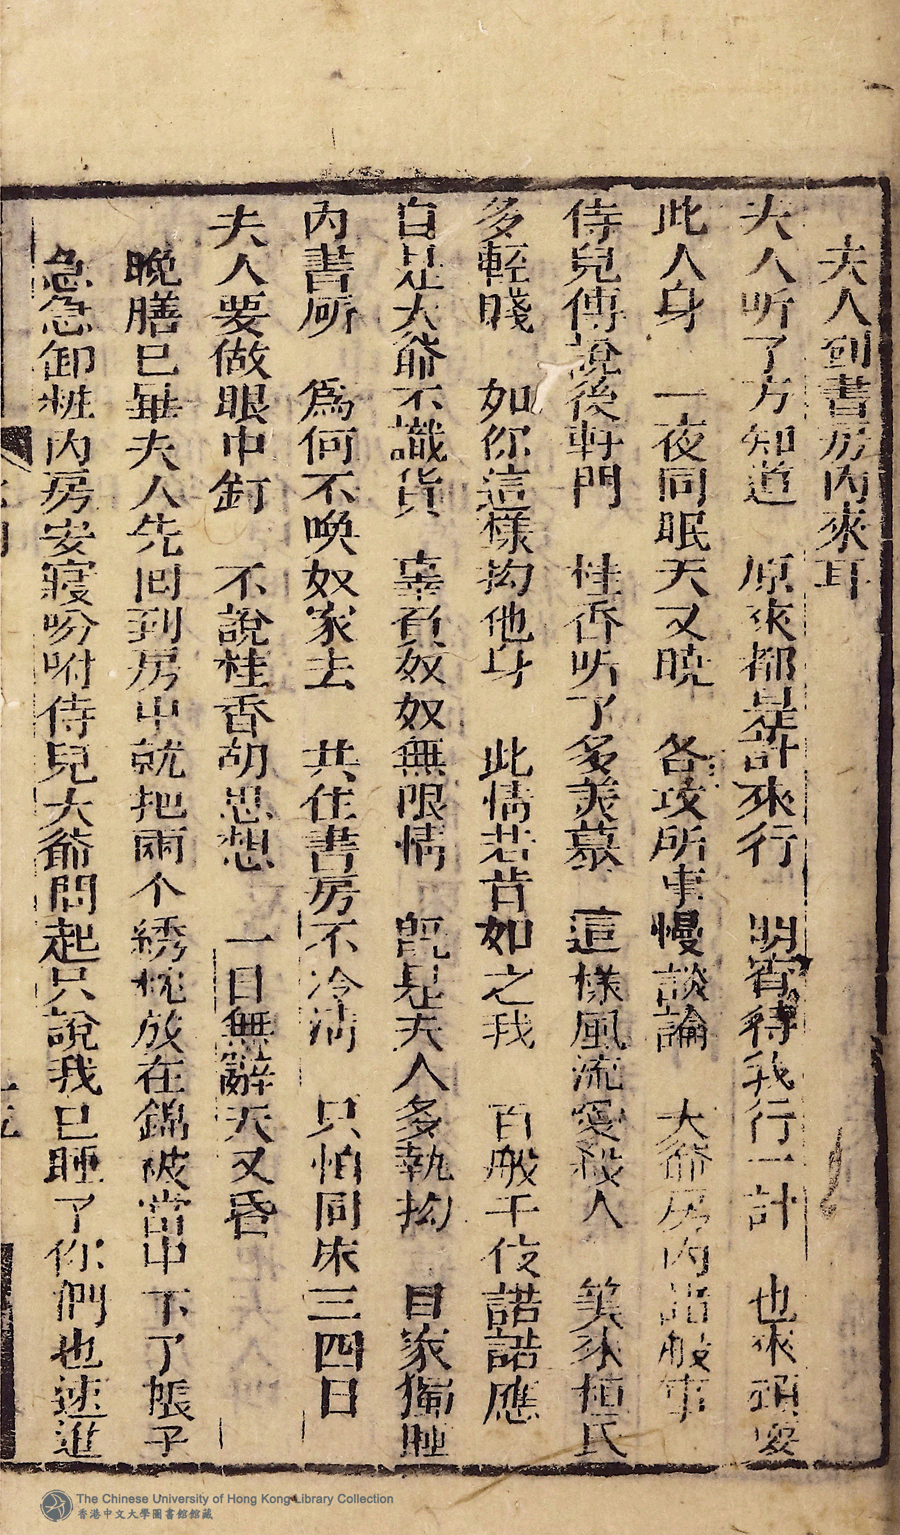 夫人到書房內來耳
夫人听了方知道　原來都是計來行　明宵待我行一計　也來頑耍
此人身　一夜同眠天又曉　各攻所事慢談論　大爺房內諸般事
侍兒傳說後軒門　桂香听了多羡慕　這樣風流愛殺人　笑來栢氏
多輕賤　如你這樣拗他身　此情若肯如之我　百般千伎諾諾應
自是大爺不識貨　辜負奴奴無限情　既是夫人多執拗　自家獨睡
內書所　為何不喚奴家去　共住書房不冷清　只怕同床三四日
夫人要做眼中釘　不說桂香胡思想　一日無辭天又昏
晚膳已畢夫人先回到房中就把兩个綉枕放在錦被當中下了帳子
急急卸粧內房安寢吩咐侍兒大爺問起只說我已睡了你們也速進
The Chinese University of Hong Kong Library Collection
香港中文大學圖書館館藏